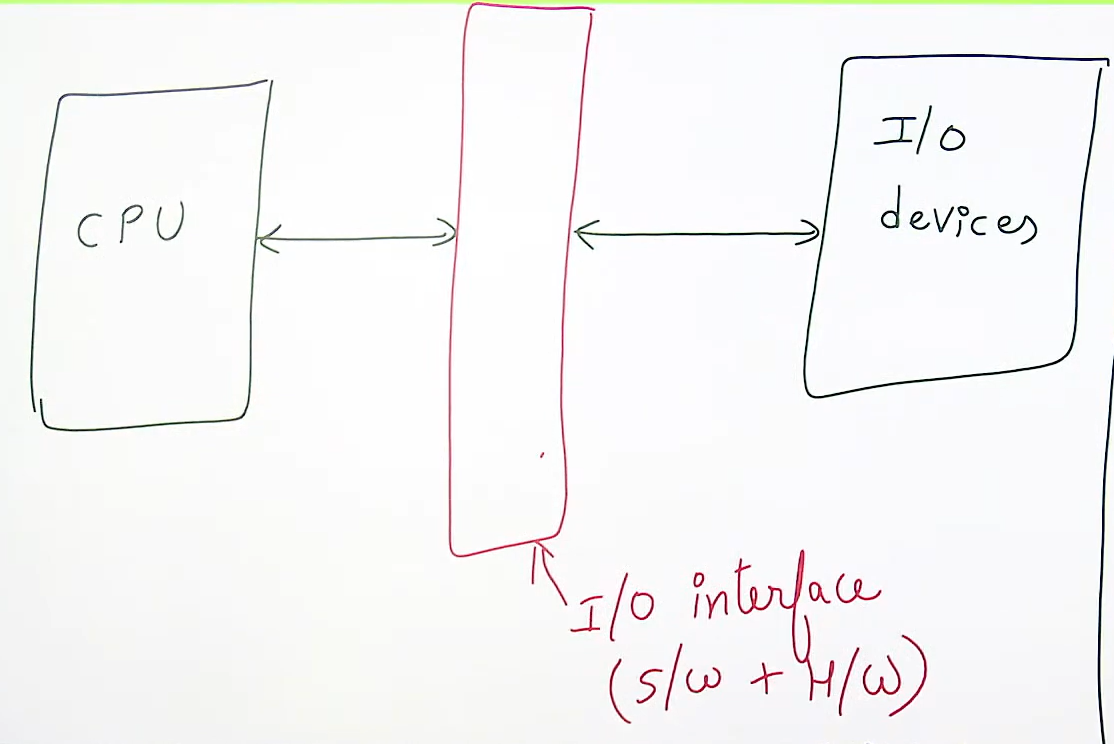 CPU
I/O
devices
I/O interface
(S/W + H/W)